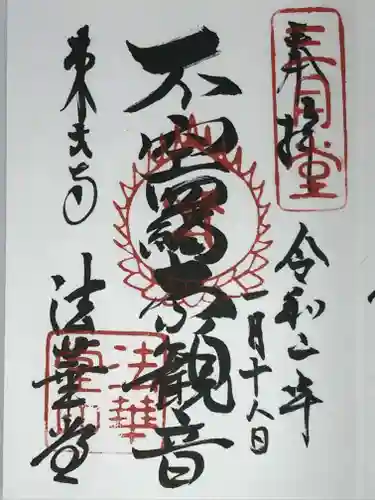 奉拝
三月堂
令和二年
一月十八日
不空羂索観音
東大寺
法華堂
法華堂印